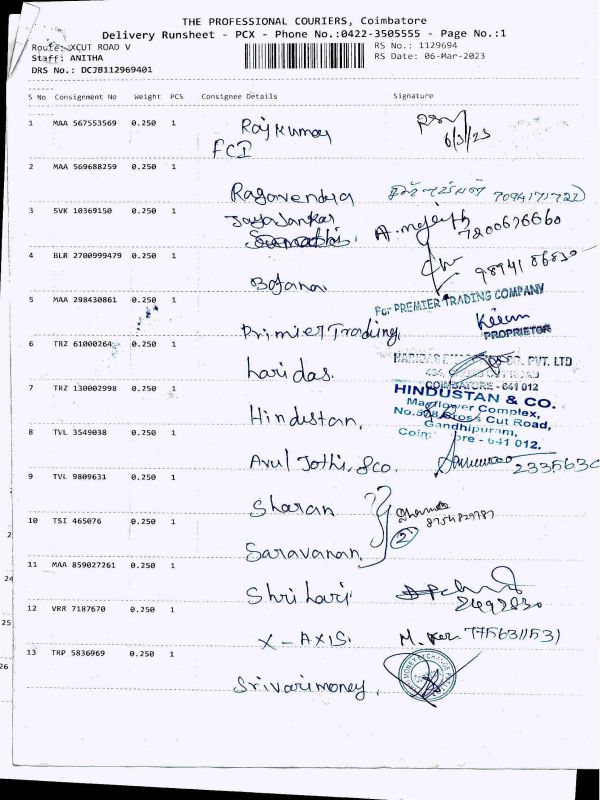 THE PROFESSIONAL COURIERS, Coimbatore
Delivery Runsheet - PCX - Phone No.:0422-3505555 - Page No.:1
Route: XCUT ROAD V
RS No.: 1129694
Staff: ANITHA
RS Date: 06-Mar-2023
DRS No.: DCJB112969401
S No Consignment No Weight PCS Consignee Details Signature
1 MAA 567553569 0.250 1 Rajkumar 6/3/23
FCI
2 MAA 569688259 0.250 1
Ragavendra 7094171722
3 SVK 10369150 0.250 1 Jayajankar
7200676660
4 BLR 2700999479 0.250 1
Bofana
5 MAA 298430861 0.250 1 For PREMIER TRADING COMPANY
Primier Trading, PROPRIETOR
6 TRZ 61000264 0.250 1
haridas. COIMBATORE - 641 012
7 TRZ 130002998 0.250 1 HINDUSTAN & CO.
Mayflower Complex,
Hindustan, Cross Cut Road,
Gandhipuram,
8 TVL 3549038 0.250 1 641 012.
Arul Jothi, &co. 2335630
9 TVL 9809631 0.250 1
Sharan
10 TSI 465076 0.250 1 2
Saravanan,
11 MAA 859027261 0.250 1
Shri hari
12 VRR 7187670 0.250 1
X-AXIS.
13 TRP 5836969 0.250 1
Srivarimoney,
2
24
25
26